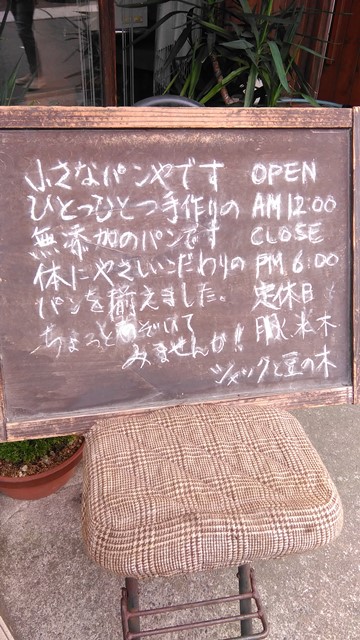 小さなパンやです
ひとつひとつ手作りの
無添加のパンです
体にやさしいこだわりの
パンを揃えました。
ちょっとのぞいて
みませんか!!
OPEN
AM 12:00
CLOSE
PM 6:00
定休日
月.水.木
ジャックと豆の木